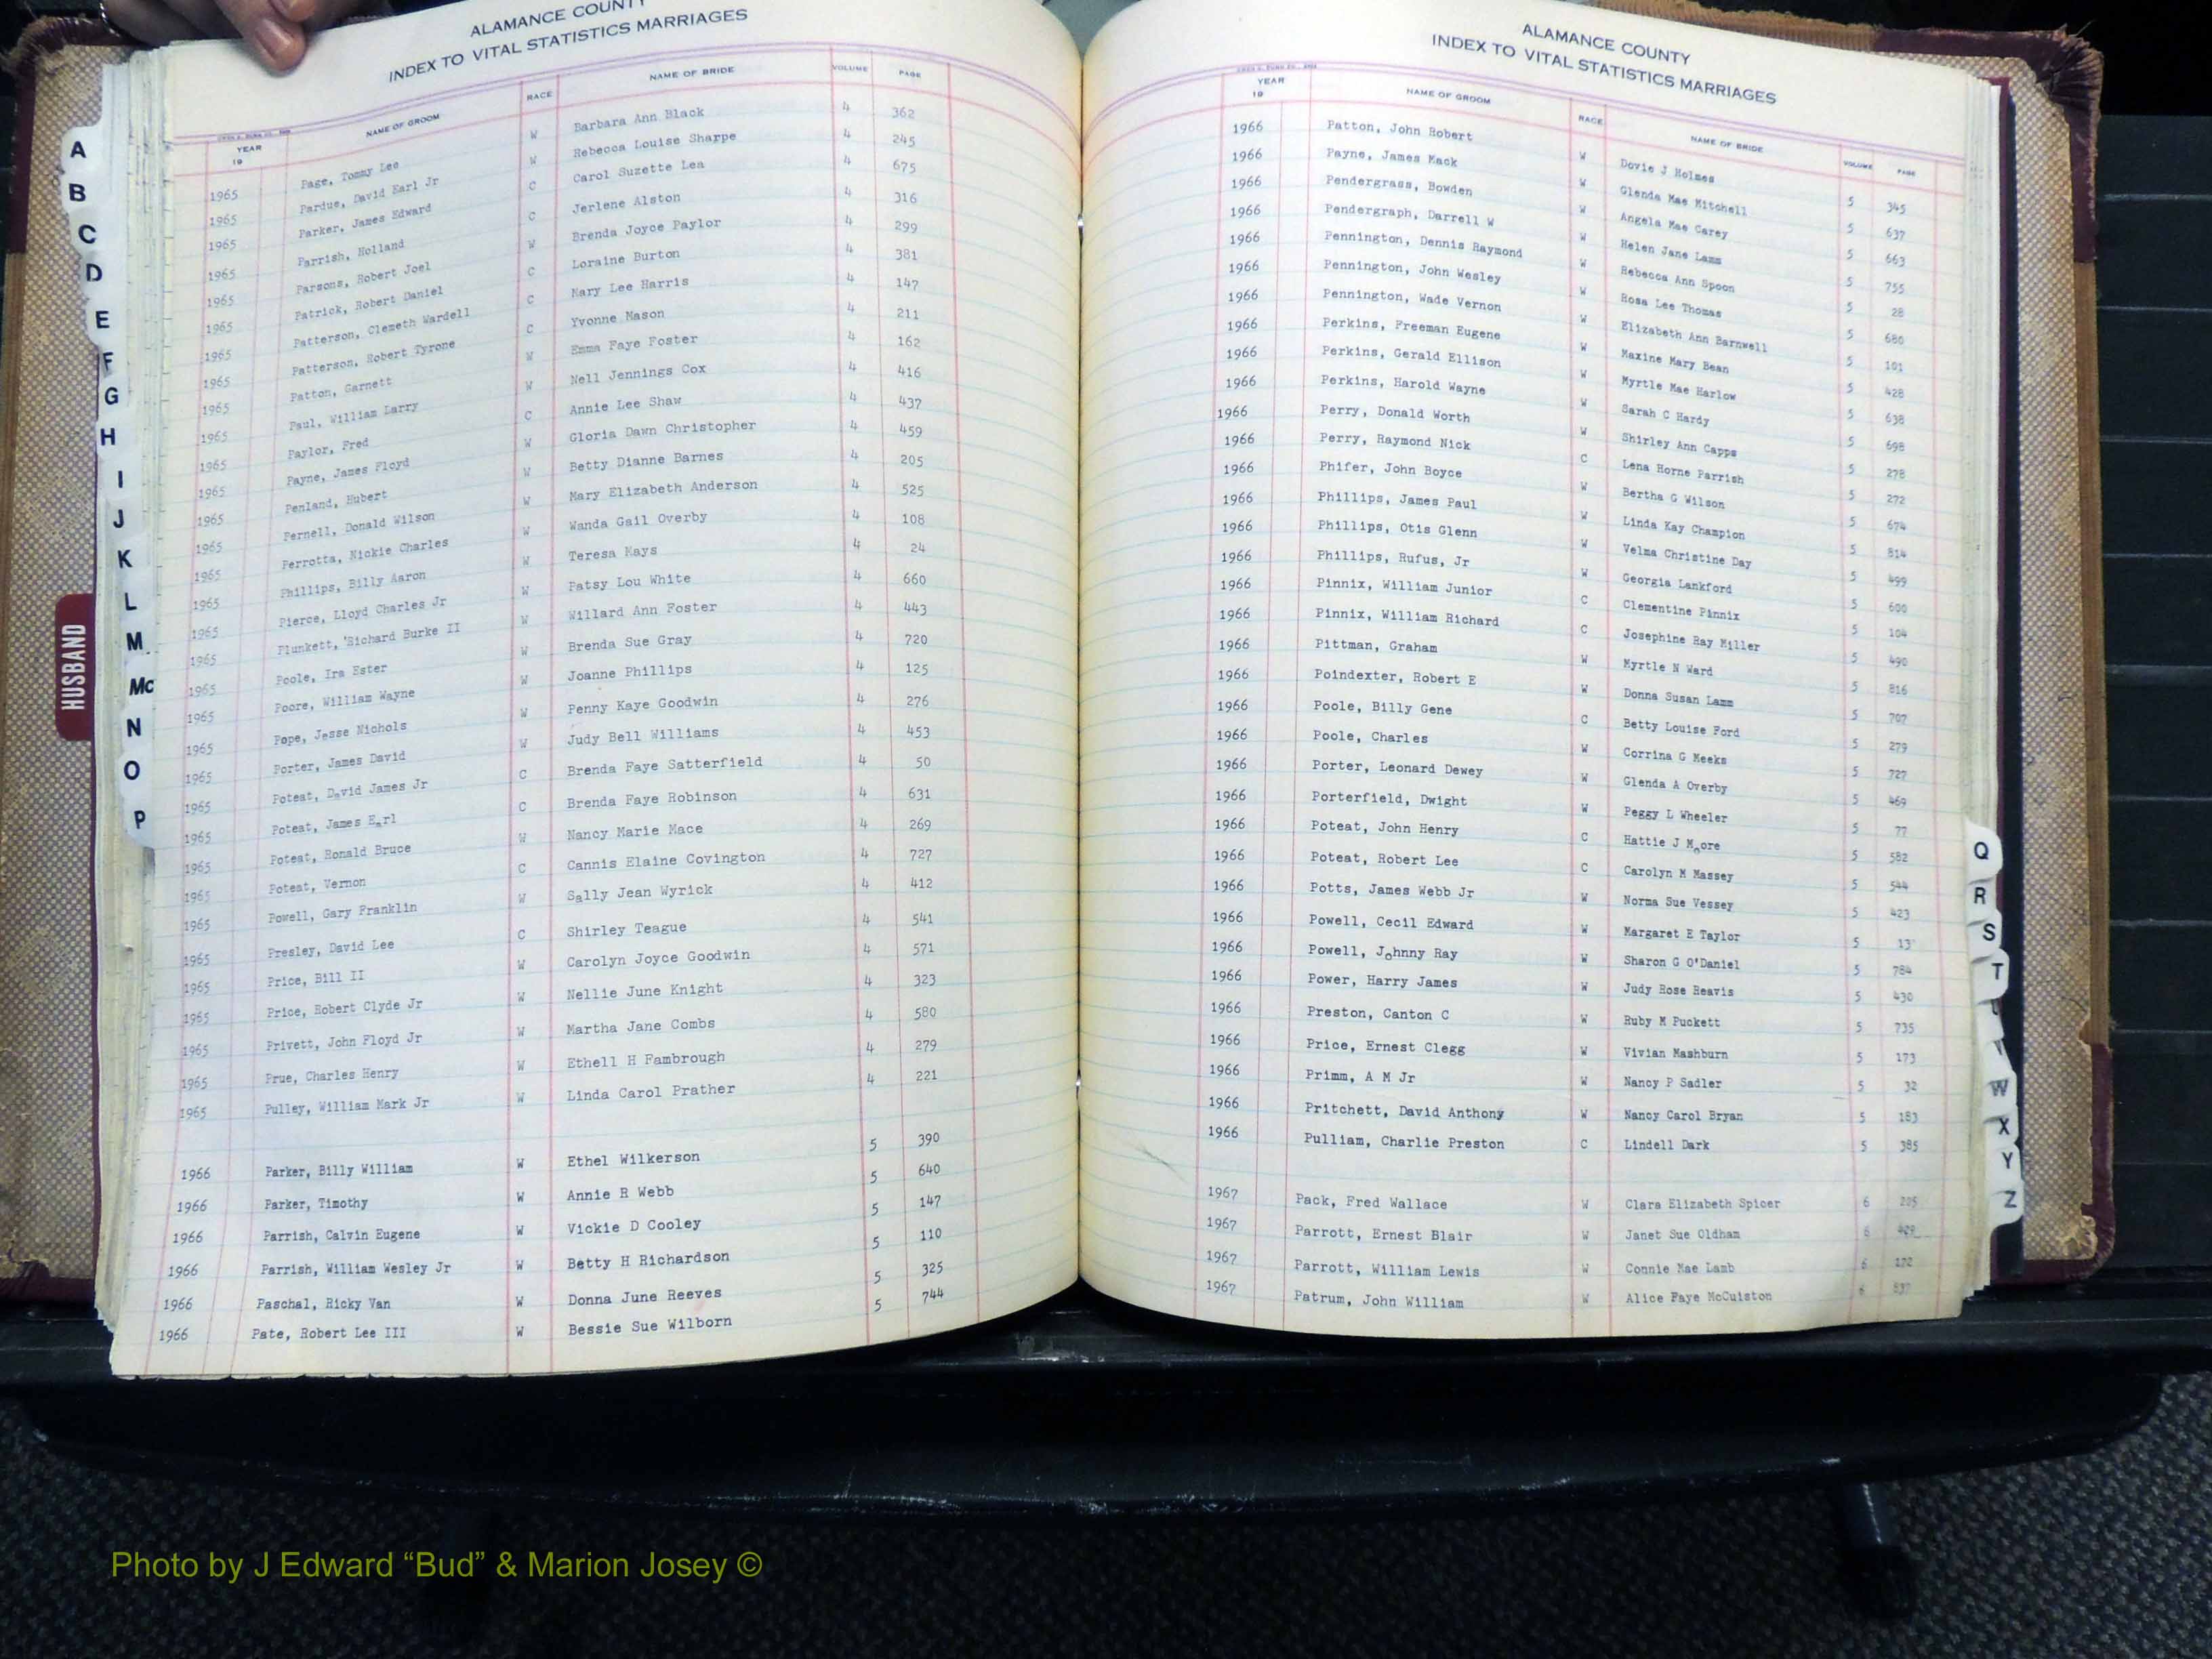 ALAMANCE COUNTY
INDEX TO VITAL STATISTICS MARRIAGES
YEAR 19 NAME OF GROOM RACE NAME OF BRIDE VOLUME PAGE
1965 Page, Tommy Lee W Barbara Ann Black 4 362
1965 Pardue, David Earl Jr W Rebecca Louise Sharpe 4 245
1965 Parker, James Edward C Carol Suzette Lea 4 675
1965 Parrish, Holland C Jerlene Alston 4 316
1965 Parsons, Robert Joel W Brenda Joyce Paylor 4 299
1965 Patrick, Robert Daniel C Loraine Burton 4 381
1965 Patterson, Clemeth Wardell C Mary Lee Harris 4 147
1965 Patterson, Robert Tyrone C Yvonne Mason 4 211
1965 Patton, Garnett W Emma Faye Foster 4 162
1965 Paul, William Larry W Nell Jennings Cox 4 416
1965 Paylor, Fred C Annie Lee Shaw 4 437
1965 Payne, James Floyd W Gloria Dawn Christopher 4 459
1965 Penland, Hubert W Betty Dianne Barnes 4 205
1965 Pernell, Donald Wilson W Mary Elizabeth Anderson 4 525
1965 Perrotta, Nickie Charles W Wanda Gail Overby 4 108
1965 Phillips, Billy Aaron W Teresa Mays 4 24
1965 Pierce, Lloyd Charles Jr W Patsy Lou White 4 660
1965 Plunkett, Richard Burke II W Willard Ann Foster 4 443
1965 Poole, Ira Ester W Brenda Sue Gray 4 720
1965 Poore, William Wayne W Joanne Phillips 4 125
1965 Pope, Jesse Nichols W Penny Kaye Goodwin 4 276
1965 Porter, James David W Judy Bell Williams 4 453
1965 Poteat, David James Jr C Brenda Faye Satterfield 4 50
1965 Poteat, James Earl C Brenda Faye Robinson 4 631
1965 Poteat, Ronald Bruce W Nancy Marie Mace 4 269
1965 Poteat, Vernon C Cannis Elaine Covington 4 727
1965 Powell, Gary Franklin W Sally Jean Wyrick 4 412
1965 Presley, David Lee C Shirley Teague 4 541
1965 Price, Bill II W Carolyn Joyce Goodwin 4 571
1965 Price, Robert Clyde Jr W Nellie June Knight 4 323
1965 Privett, John Floyd Jr W Martha Jane Combs 4 580
1965 Prue, Charles Henry W Ethell H Fambrough 4 279
1965 Pulley, William Mark Jr W Linda Carol Prather 4 221
1966 Parker, Billy William W Ethel Wilkerson 5 390
1966 Parker, Timothy W Annie R Webb 5 640
1966 Parrish, Calvin Eugene W Vickie D Cooley 5 147
1966 Parrish, William Wesley Jr W Betty H Richardson 5 110
1966 Paschal, Ricky Van W Donna June Reeves 5 325
1966 Pate, Robert Lee III W Bessie Sue Wilborn 5 744
A
B
C
D
E
F
G
H
I
J
K
L
M
Mc
N
O
P
HUSBAND
ALAMANCE COUNTY
INDEX TO VITAL STATISTICS MARRIAGES
YEAR 19 NAME OF GROOM RACE NAME OF BRIDE VOLUME PAGE
1966 Patton, John Robert W Dovie J Holmes 5 345
1966 Payne, James Mack W Glenda Mae Mitchell 5 637
1966 Pendergrass, Bowden W Angela Mae Carey 5 663
1966 Pendergraph, Darrell W W Helen Jane Lamm 5 755
1966 Pennington, Dennis Raymond W Rebecca Ann Spoon 5 28
1966 Pennington, John Wesley W Rosa Lee Thomas 5 680
1966 Pennington, Wade Vernon W Elizabeth Ann Barnwell 5 101
1966 Perkins, Freeman Eugene W Maxine Mary Bean 5 428
1966 Perkins, Gerald Ellison W Myrtle Mae Harlow 5 638
1966 Perkins, Harold Wayne W Sarah C Hardy 5 698
1966 Perry, Donald Worth W Shirley Ann Capps 5 278
1966 Perry, Raymond Nick C Lena Horne Parrish 5 272
1966 Phifer, John Boyce W Bertha G Wilson 5 674
1966 Phillips, James Paul W Linda Kay Champion 5 814
1966 Phillips, Otis Glenn W Velma Christine Day 5 499
1966 Phillips, Rufus, Jr W Georgia Lankford 5 600
1966 Pinnix, William Junior C Clementine Pinnix 5 104
1966 Pinnix, William Richard C Josephine Ray Miller 5 490
1966 Pittman, Graham W Myrtle N Ward 5 816
1966 Poindexter, Robert E W Donna Susan Lamm 5 707
1966 Poole, Billy Gene C Betty Louise Ford 5 279
1966 Poole, Charles W Corrina G Meeks 5 727
1966 Porter, Leonard Dewey W Glenda A Overby 5 469
1966 Porterfield, Dwight W Peggy L Wheeler 5 77
1966 Poteat, John Henry C Hattie J Moore 5 582
1966 Poteat, Robert Lee C Carolyn M Massey 5 544
1966 Potts, James Webb Jr W Norma Sue Vessey 5 423
1966 Powell, Cecil Edward W Margaret E Taylor 5 13
1966 Powell, Johnny Ray W Sharon G O'Daniel 5 784
1966 Power, Harry James W Judy Rose Reavis 5 430
1966 Preston, Canton C W Ruby M Puckett 5 735
1966 Price, Ernest Clegg W Vivian Mashburn 5 173
1966 Primm, A M Jr W Nancy P Sadler 5 32
1966 Pritchett, David Anthony W Nancy Carol Bryan 5 183
1966 Pulliam, Charlie Preston C Lindell Dark 5 385
1967 Pack, Fred Wallace W Clara Elizabeth Spicer 6
1967 Parrott, Ernest Blair W Janet Sue Oldham 6
1967 Parrott, William Lewis W Connie Mae Lamb 6
1967 Patrum, John William W Alice Faye McCuiston 6
Q
R
S
T
W
X
Y
Z
Photo by J Edward “Bud” & Marion Josey ©